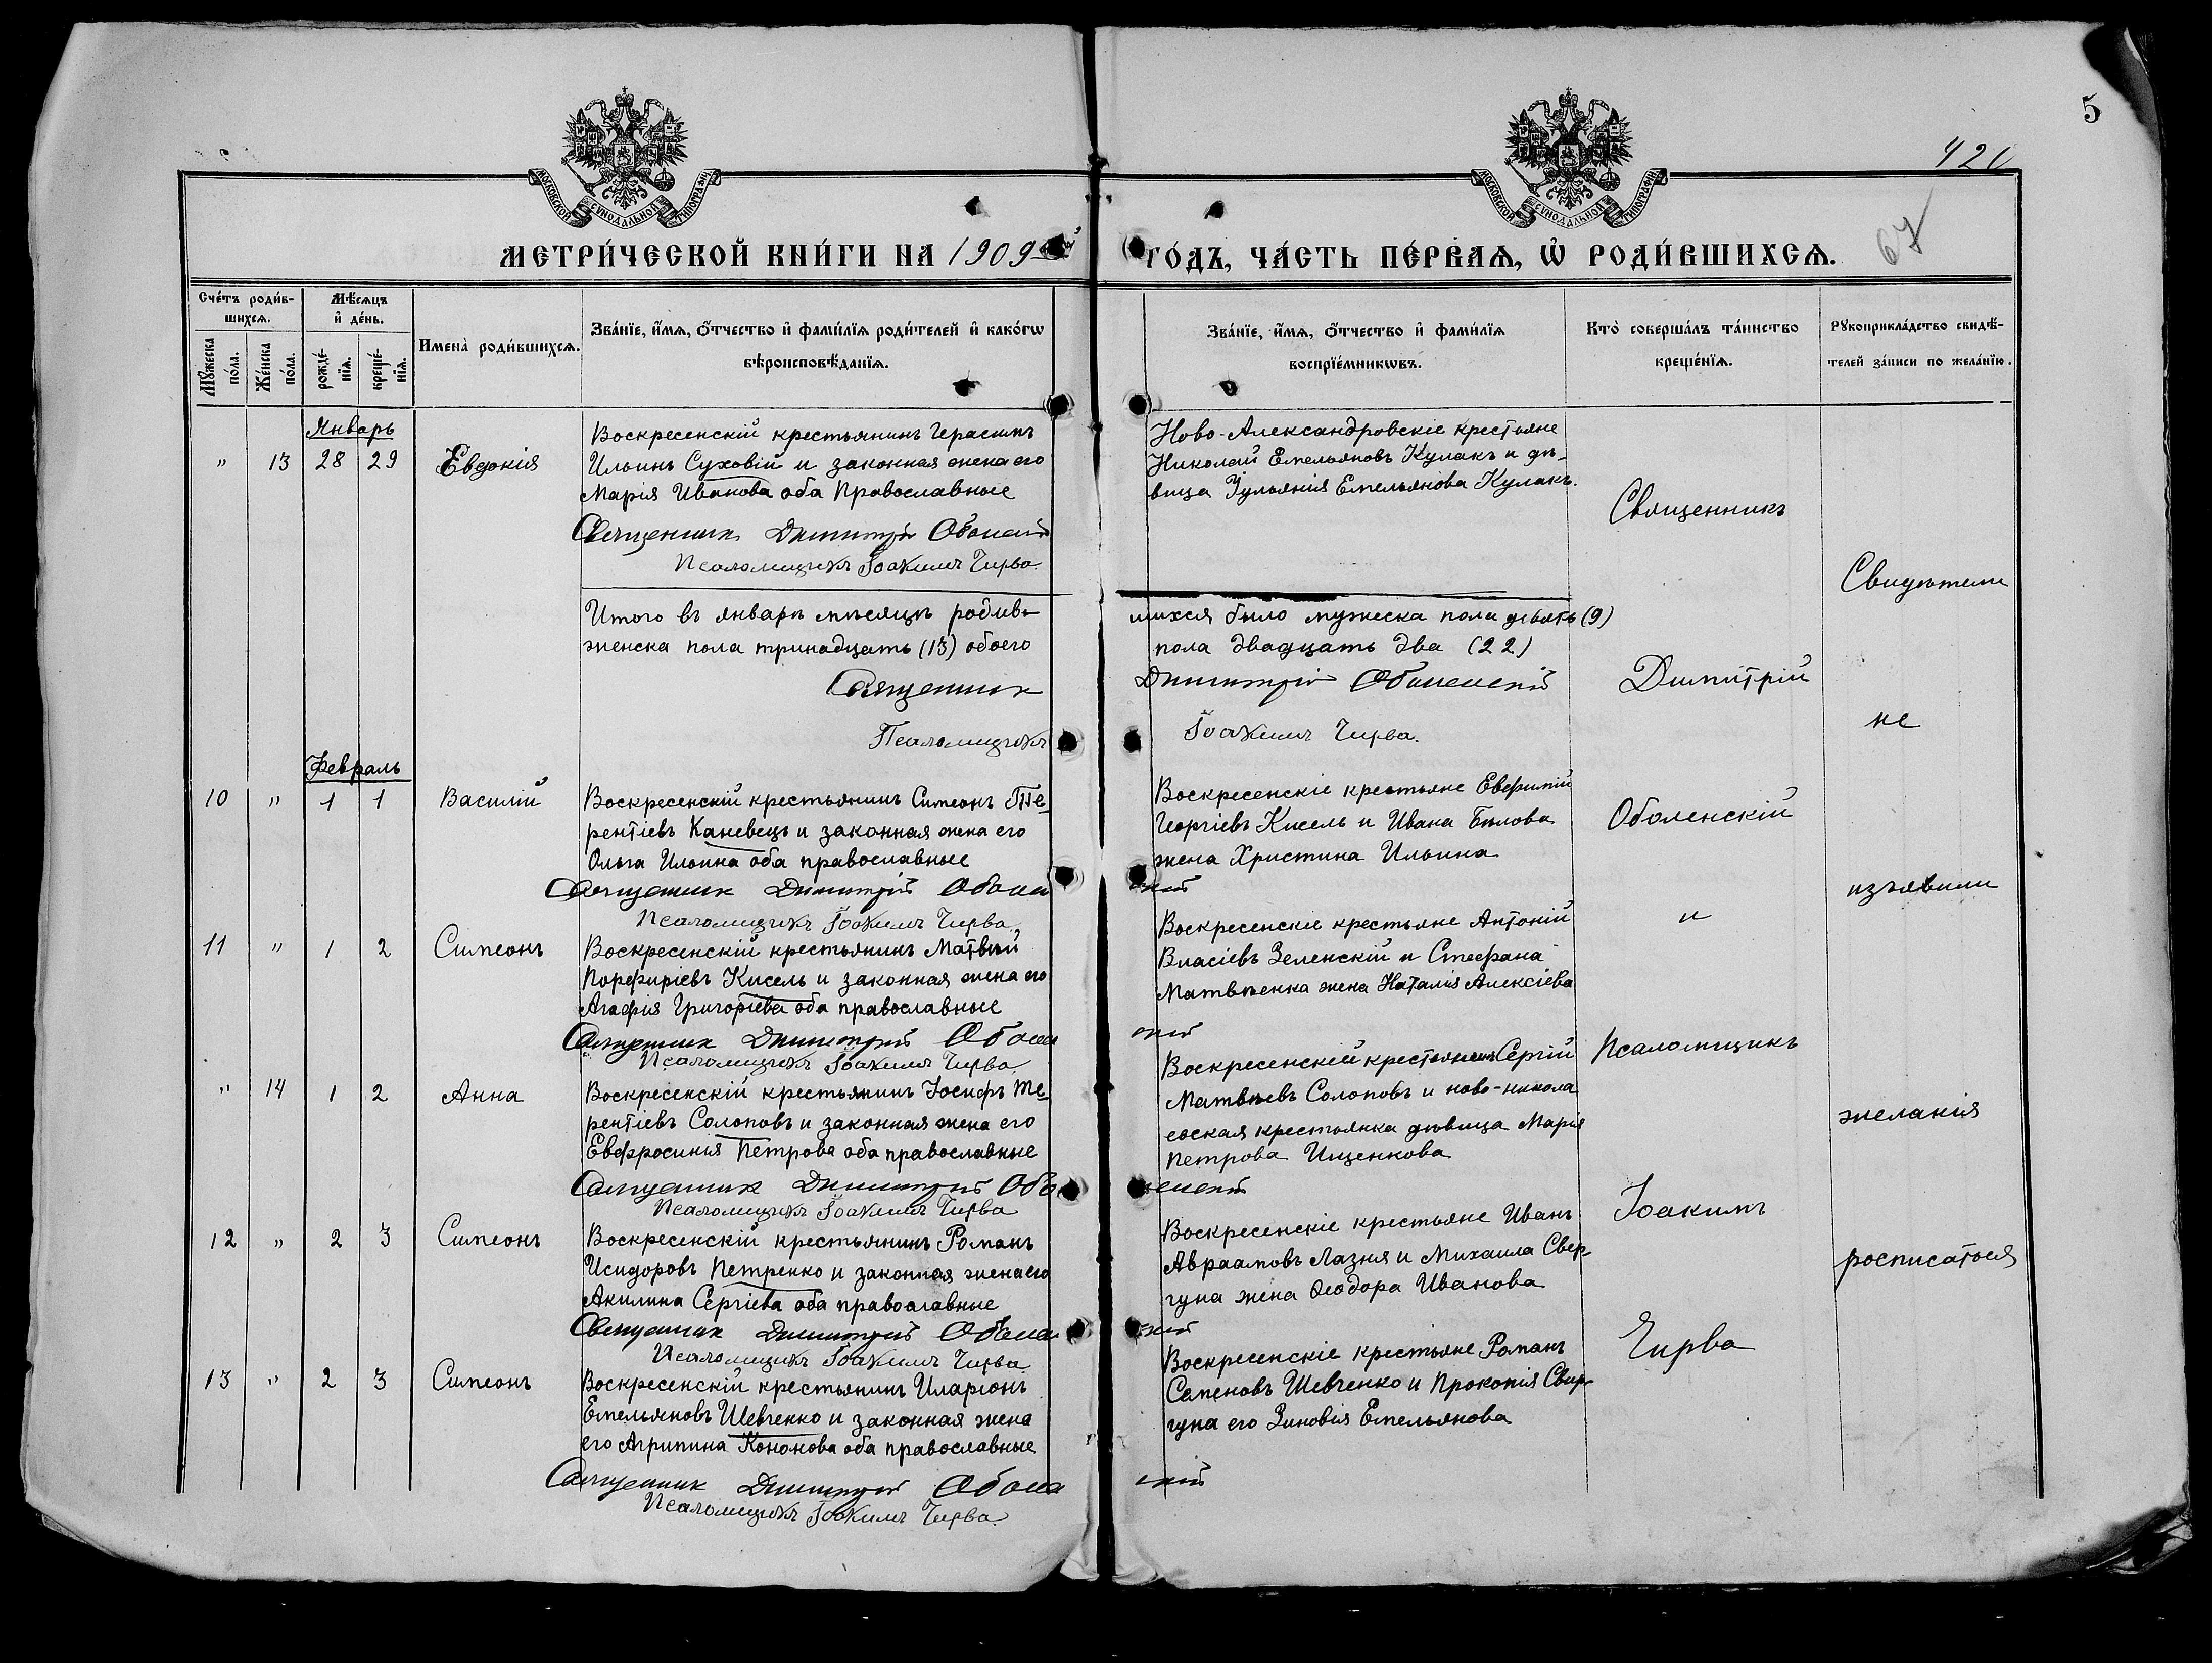 МОСКОВСКОЙ СѴНОДАЛЬНОЙ ТИПОГРАФІИ
МОСКОВСКОЙ СѴНОДАЛЬНОЙ ТИПОГРАФІИ
5
67
МЕТРИ́ЧЕСКОЙ КНИ́ГИ НА 1909
ГО́ДЪ, ЧА́СТЬ ПЕ́РВАѦ, Ѡ҆ РОДИ́ВШИХСѦ.
Сче́тъ роди́в-
шихсѧ.
Мꙋ́жеска по́ла.
Же́нска по́ла.
Мѣ́сѧцъ
и҆ де́нь.
рожде́-
нїѧ.
креще́-
нїѧ.
Имена̀ роди́вшихсѧ.
Зва́нїе, и҆́мѧ, ѻ҆́тчество и҆ фами́лїѧ роди́телей и҆ како́гѡ
вѣроисповѣ́данїѧ.
Зва́нїе, и҆́мѧ, ѻ҆́тчество и҆ фами́лїѧ
воспрїе́мникѡвъ.
Кто̀ соверша́лъ та́инство
креще́нїѧ.
Рꙋкоприкла́дство свидѣ́-
телей за́писи по жела́нїю.
Январь
" 13 28 29 Евдокія
Воскресенскій крестьянинъ Герасимъ
Ильинъ Суховій и законная жена его
Марія Иванова оба Православные
Священникъ Димитрій Оболенскій
Псаломщикъ Іоакимъ Чирва
Ново-Александровскіе крестьяне
Николай Емельяновъ Кулакъ и дѣ-
вица Іуліанія Емельянова Кулакъ.
Итого въ январѣ мѣсяцѣ родив-
шихся было мужеска пола девять (9)
женска пола тринадцать (13) обоего
пола двадцать два (22)
Священникъ Димитрій Оболенскій
Псаломщикъ Іоакимъ Чирва.
Февраль
10 " 1 1 Василій
Воскресенскій крестьянинъ Симеонъ Те-
рентіевъ Каневецъ и законная жена его
Ольга Ильина оба православные
Священникъ Димитрій Оболенскій
Псаломщикъ Іоакимъ Чирва.
Воскресенскіе крестьяне Евфимій
Георгіевъ Кисель и Ивана Бѣлова
жена Христина Ильина
11 " 1 2 Симеонъ
Воскресенскій крестьянинъ Матвѣй
Порфиріевъ Кисель и законная жена его
Агафія Григоріева оба православные
Священникъ Димитрій Оболенскій
Псаломщикъ Іоакимъ Чирва.
Воскресенскіе крестьяне Антоній
Власіевъ Зеленскій и Стефана
Матвѣенка жена Наталія Алексіева
" 14 1 2 Анна
Воскресенскій крестьянинъ Іосифъ Те-
рентіевъ Солоповъ и законная жена его
Евфросинія Петрова оба православные
Священникъ Димитрій Оболенскій
Псаломщикъ Іоакимъ Чирва
Воскресенскій крестьянинъ Сергій
Матвѣевъ Солоповъ и ново-никола
евская крестьянка дѣвица Марія
Петрова Ищенкова
12 " 2 3 Симеонъ
Воскресенскій крестьянинъ Романъ
Исидоровъ Петренко и законная жена его
Акилина Сергіева оба православные
Священникъ Димитрій Оболенскій
Псаломщикъ Іоакимъ Чирва
Воскресенскіе крестьяне Иванъ
Авраамовъ Лазня и Михаила Свер-
гуна жена Ѳеодора Иванова
13 " 2 3 Симеонъ
Воскресенскій крестьянинъ Иларіонъ
Емельяновъ Шевченко и законная жена
его Агрипина Кононова оба православные
Священникъ Димитрій Оболенскій
Псаломщикъ Іоакимъ Чирва.
Воскресенскіе крестьяне Романъ
Семеновъ Шевченко и Прокопія Свир-
гуна его Зиновія Емельянова
Священникъ
Димитрій
Оболенскій
и
Псаломщикъ
Іоакимъ
Чирва
Свидѣтели
не
изъявили
желанія
росписаться